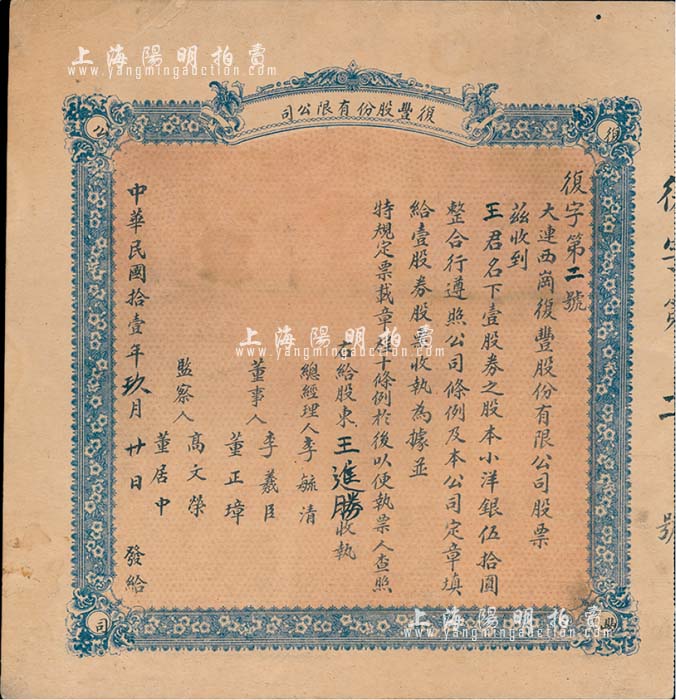 上海陽明拍賣
www.yangmingauction.com
復豐股份有限公司
復
公
司
復字第二號
大連西崗復豐股份有限公司股票
茲收到
王君名下壹股券之股本小洋銀伍拾圓
整合行遵照公司條例及本公司定章填
給壹股券股票收執為據並
特規定票載章程十條例於後以便執票人查照
右給股東王進勝收執
總經理人李毓清
董事人
李義臣
董正璋
監察人
高文榮
董居中
中華民國拾壹年玖月廿日
發給
復字第二號
上海陽明拍賣
www.yangmingauction.com
上海陽明拍賣
www.yangmingauction.com